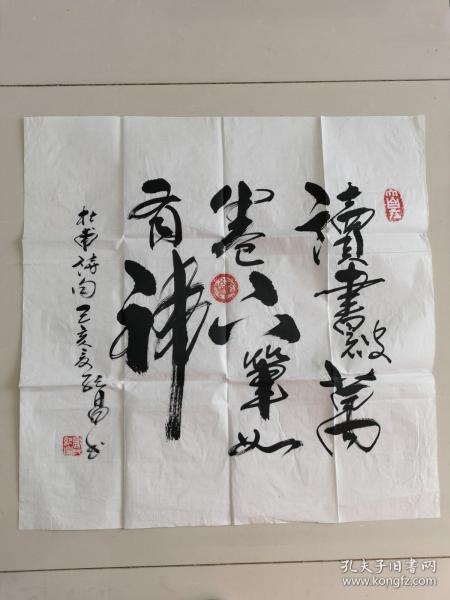 讀書破萬
卷下筆如
有神
杜甫詩句 己亥夏 張勇书
孔夫子旧书网
www.kongfz.com